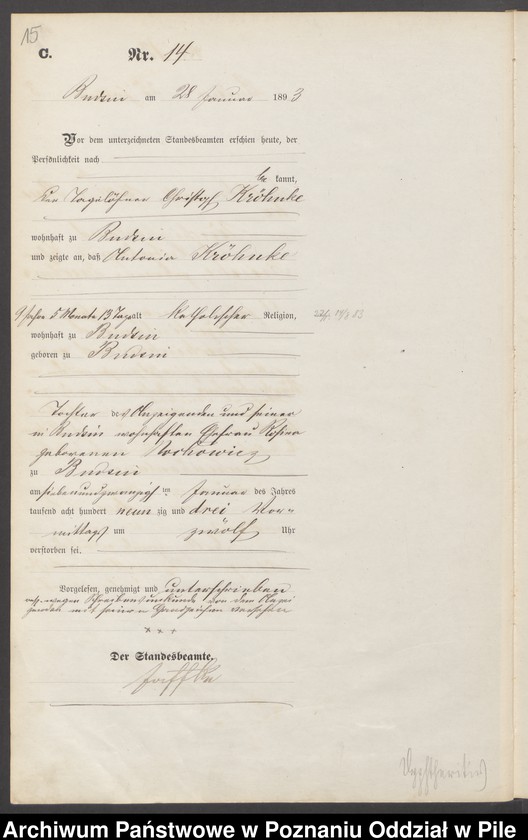 15
C. Nr. 14
Budsin am 28 Januar 1893
Vor dem unterzeichneten Standesbeamten erschien heute, der
Persönlichkeit nach
be kannt,
der Tagelöhner Christoph Kröhnke
wohnhaft zu Budsin
und zeigte an, daß Antonia Kröhnke
9 Jahre 5 Monate 13 Tage alt katholischer Religion,
wohnhaft zu Budsin
geboren zu Budsin
Tochter des Anzeigenden und seiner
in Budsin wohnhaften Ehefrau Rosina
geborenen Rochowicz
zu Budsin
am siebenundzwanzigsten Januar des Jahres
tausend acht hundert neun zig und drei Vor-
mittags um zwölf Uhr
verstorben sei.
Vorgelesen, genehmigt und unterschrieben
wegen Schreibensunkunde von dem Anzei
genden mit seinem Handzeichen versehen
+ + +
Der Standesbeamte.
Dyphtheritis
Archiwum Państwowe w Poznaniu Oddział w Pile